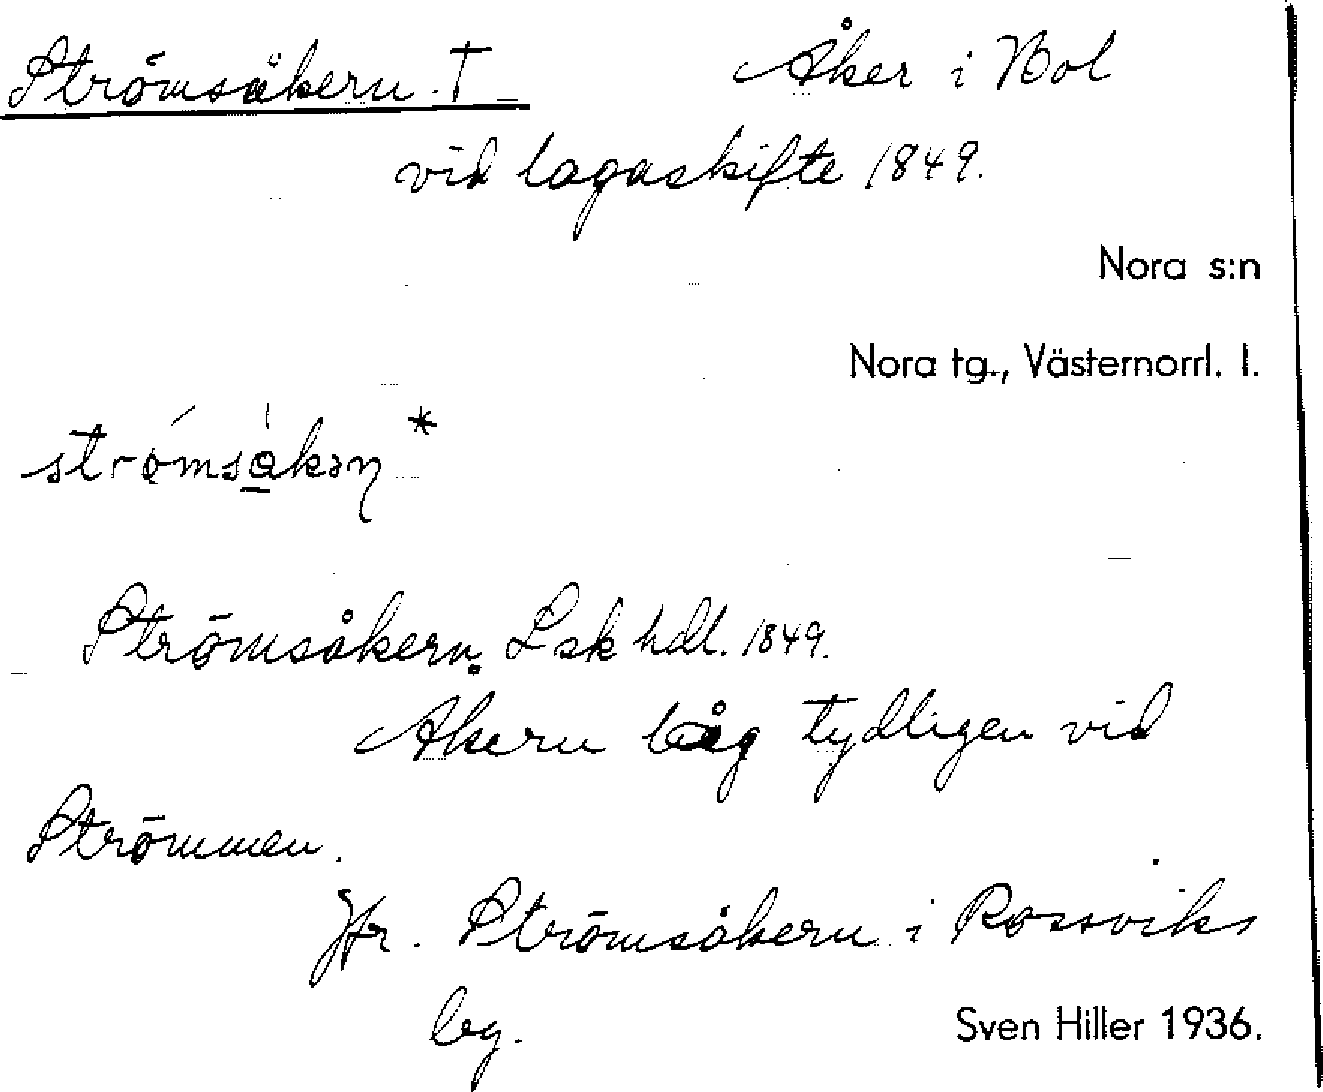 Strömsåkern † Åker i Bol
vid lagaskifte 1849.
Nora s:n
Nora tg., Västernorrl. l.
strömsåkən *
Strömsåkern. Lsk hdl. 1849.
Åkern låg tydligen vid
Strömmen.
Jfr. Strömsåkern i Rossviks
by.
Sven Hiller 1936.